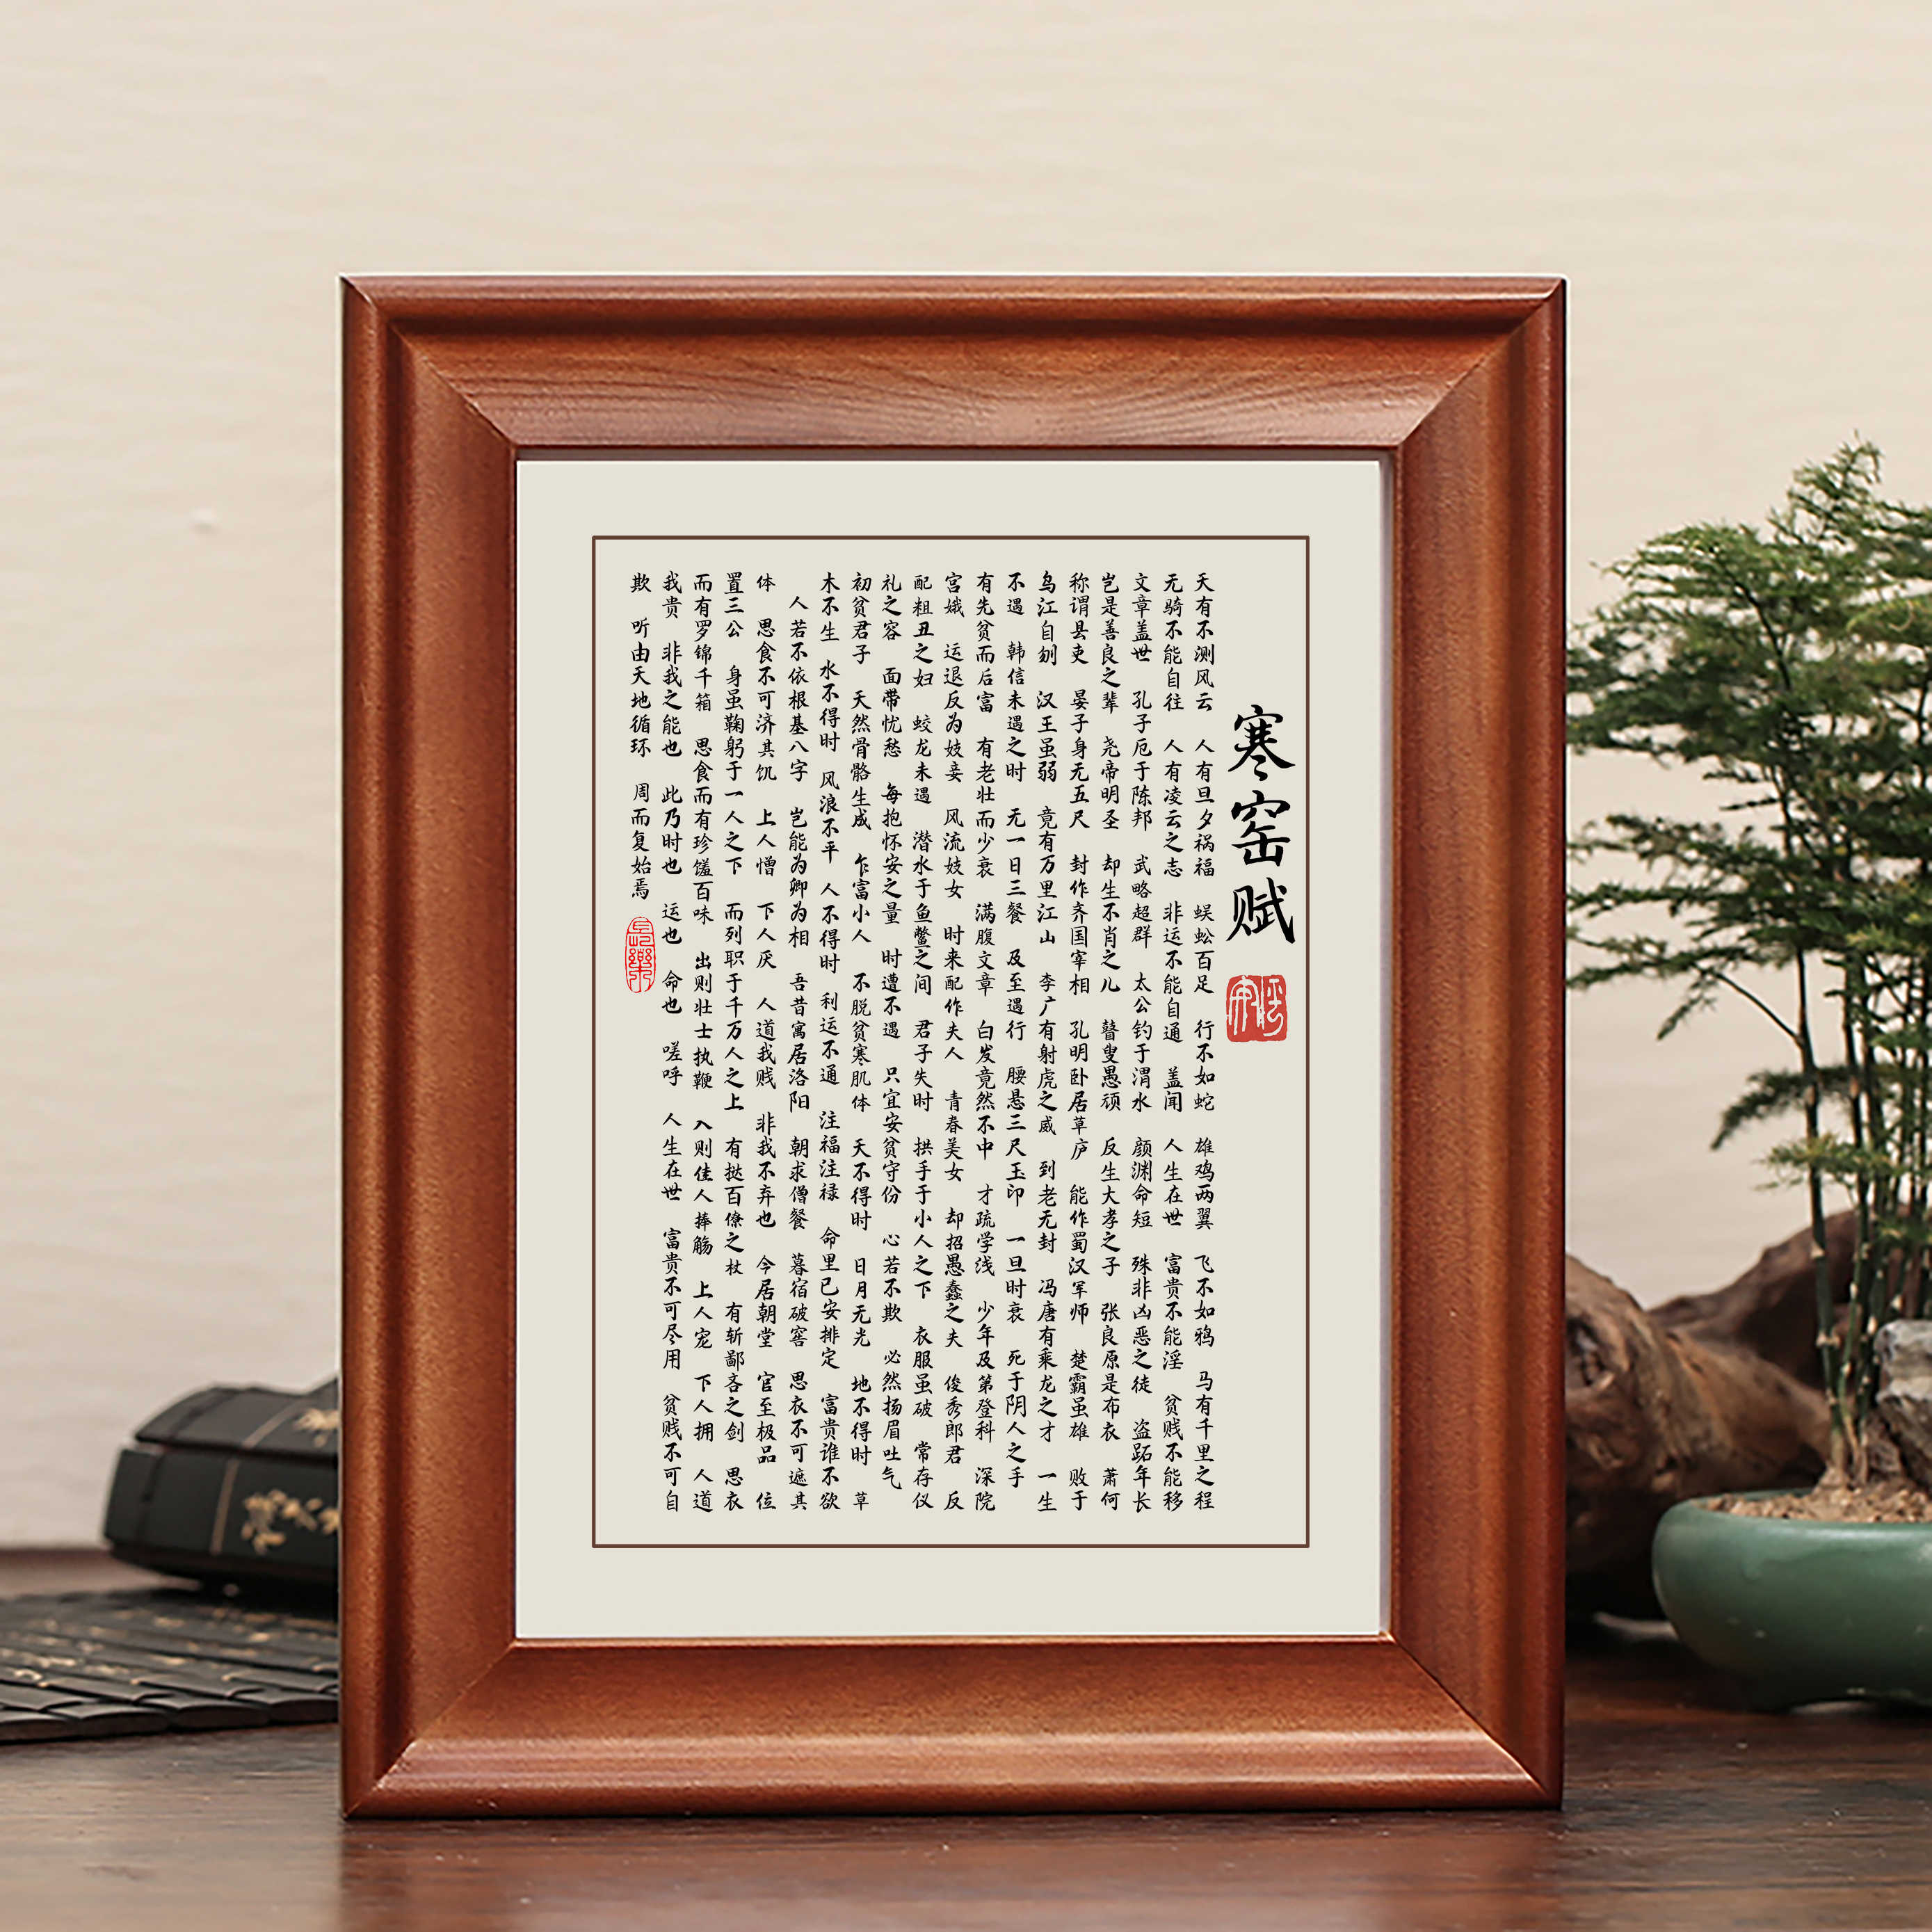 寒窑赋
天有不测风云 人有旦夕祸福 蜈蚣百足 行不如蛇 雄鸡两翼 飞不如鸦 马有千里之程
无骑不能自往 人有凌云之志 非运不能自通 盖闻 人生在世 富贵不能淫 贫贱不能移
文章盖世 孔子厄于陈邦 武略超群 太公钓于渭水 颜渊命短 殊非凶恶之徒 盗跖年长
岂是善良之辈 尧帝明圣 却生不肖之儿 瞽叟愚顽 反生大孝之子 张良原是布衣 萧何
称谓县吏 晏子身无五尺 封作齐国宰相 孔明卧居草庐 能作蜀汉军师 楚霸虽雄 败于
乌江自刎 汉王虽弱 竟有万里江山 李广有射虎之威 到老无封 冯唐有乘龙之才 一生
不遇 韩信未遇之时 无一日三餐 及至遇行 腰悬三尺玉印 一旦时衰 死于阴人之手
有先贫而后富 有老壮而少衰 满腹文章 白发竟然不中 才疏学浅 少年及第登科 深院
宫娥 运退反为妓妾 风流妓女 时来配作夫人 青春美女 却招愚蠢之夫 俊秀郎君 反
配粗丑之妇 蛟龙未遇 潜水于鱼鳖之间 君子失时 拱手于小人之下 衣服虽破 常存仪
礼之容 面带忧愁 每抱怀安之量 时遭不遇 只宜安贫守份 心若不欺 必然扬眉吐气
初贫君子 天然骨骼生成 乍富小人 不脱贫寒肌体 天不得时 日月无光 地不得时 草
木不生 水不得时 风浪不平 人不得时 利运不通 注福注禄 命里已安排定 富贵谁不欲
人若不依根基八字 岂能为卿为相 吾昔寓居洛阳 朝求僧餐 暮宿破窖 思衣不可遮其
体 思食不可济其饥 上人憎 下人厌 人道我贱 非我不弃也 今居朝堂 官至极品 位
置三公 身虽鞠躬于一人之下 而列职于千万人之上 有挞百僚之杖 有斩鄙吝之剑 思衣
而有罗锦千箱 思食而有珍馐百味 出则壮士执鞭 入则佳人捧觞 上人宠 下人拥 人道
我贵 非我之能也 此乃时也 运也 命也 嗟呼 人生在世 富贵不可尽用 贫贱不可自
欺 听由天地循环 周而复始焉
长乐